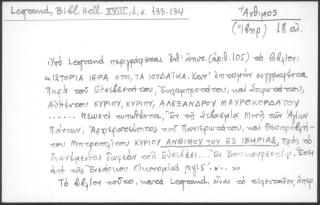 Legrand, Bibl. Hell. XVIII, t. ε, 133-134
Ἄνθιμος
(Ἴβηρ) 18 αἰ.
Ὑπὸ Legrand περιγράφεται ἐπ' (ἀριθ. 105) τὸ βιβλίον:
«ΙΣΤΟΡΙΑ ΙΕΡΑ ΗΤΟΙ, ΤΑ ΙΟΥΔΑΪΚΑ. Κατ' ἐπιτομὴν συγγραφέντα
Παρὰ τοῦ Εὐσεβεστάτου, Ἐκλαμπροτάτου, καὶ Σοφωτάτου,
Αὐθέντου ΚΥΡΙΟΥ, ΚΥΡΙΟΥ, ΑΛΕΞΑΝΔΡΟΥ ΜΑΥΡΟΚΟΡΔΑΤΟΥ
...... Νεωστὶ τυπωθέντα, Ἐν τῇ Σεβασμίᾳ Μονῇ τῶν Ἁγίων
Πάντων, Ἀρχιερατεύοντος τοῦ Πανιερωτάτου, καὶ Θεοπροβλή-
του Μητροπολίτου ΚΥΡΙΟΥ ΑΝΘΙΜΟΥ ΤΟΥ ΕΞ ΙΒΗΡΙΑΣ, πρὸς τὸ
διανέμεσθαι δωρεὰν τοῖς Εὐσεβέσι... Ἐν Βουκουρεστίῳ. Ἔτει
ἀπὸ τῆς Ἐνσάρκου Οἰκονομίας ͵αψιϛ´. . .»
Τὸ βιβλίον τοῦτο, κατὰ Legrand, εἶναι τὸ τελευταῖον, ὅπερ